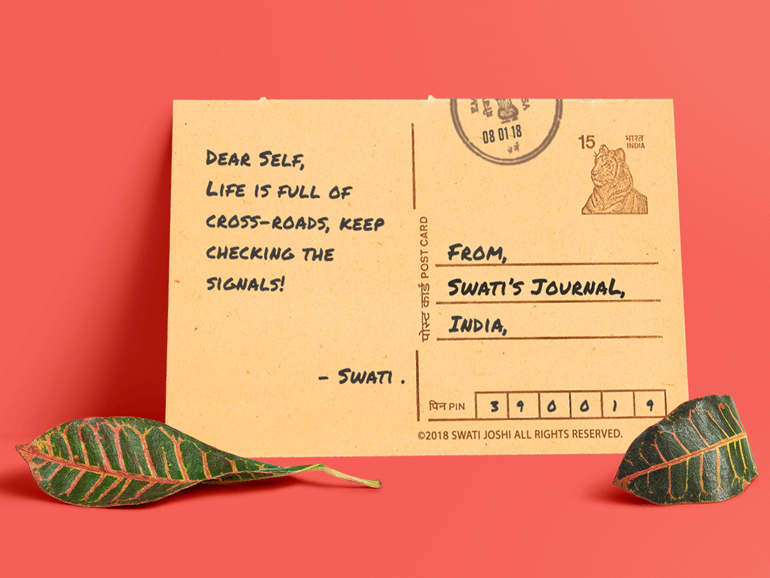 DEAR SELF,
LIFE IS FULL OF
CROSS-ROADS, KEEP
CHECKING THE
SIGNALS!
- SWATI .
08 01 18
15 भारत
INDIA
पोस्ट कार्ड POST CARD
FROM,
SWATI'S JOURNAL,
INDIA,
पिन PIN 390019
©2018 SWATI JOSHI ALL RIGHTS RESERVED.